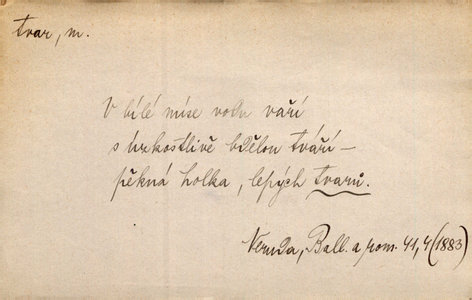 tvar, m.
V bílé míse vodu vaří
s úzkostlivě bdělou tváří –
pěkná holka, lepých tvarů.
Neruda, Ball. a rom. 41, 4 (1883)